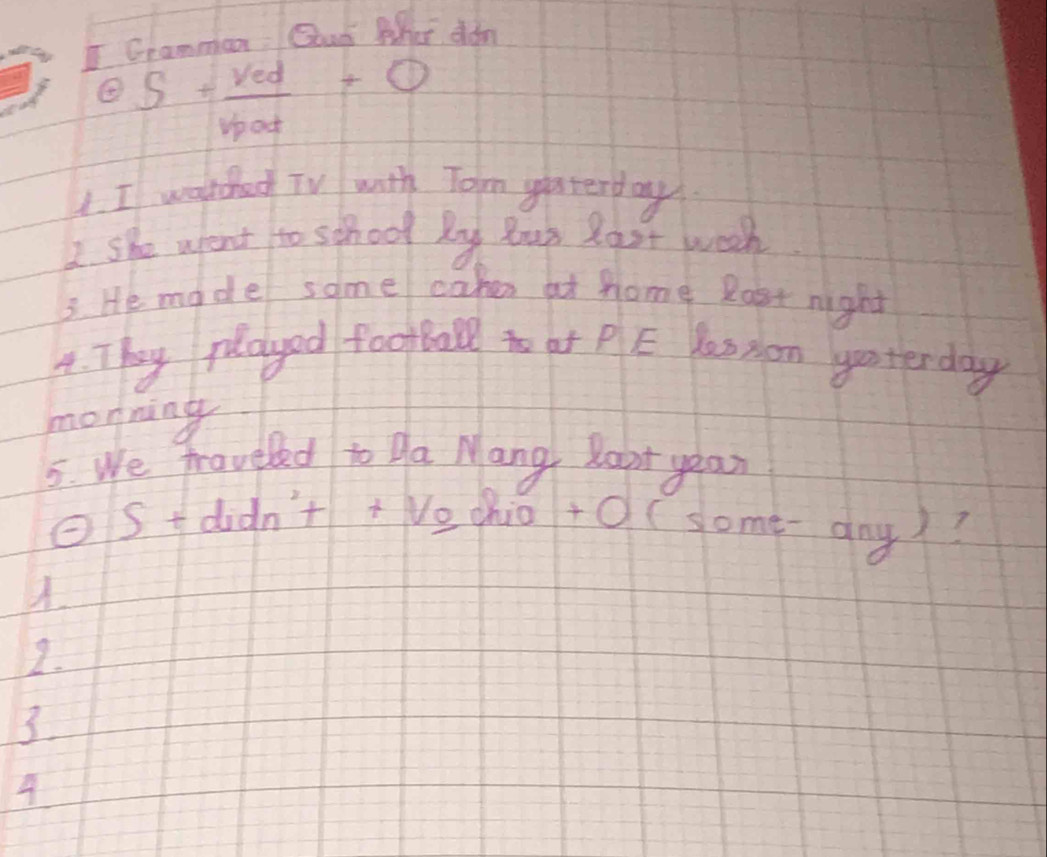 I Grammar: Quá khứ đơn
⊕ S + Ved + O
Vpast
1. I watched TV with Tom yesterday.
2. She went to school by bus last week.
3. He made some cakes at home last night
4. They played football to at PE lesson yesterday
morning
5. We traveled to Da Nang last year.
⊖ S + didn't + Vo chia + O (some - any)?
1.
2.
3.
4